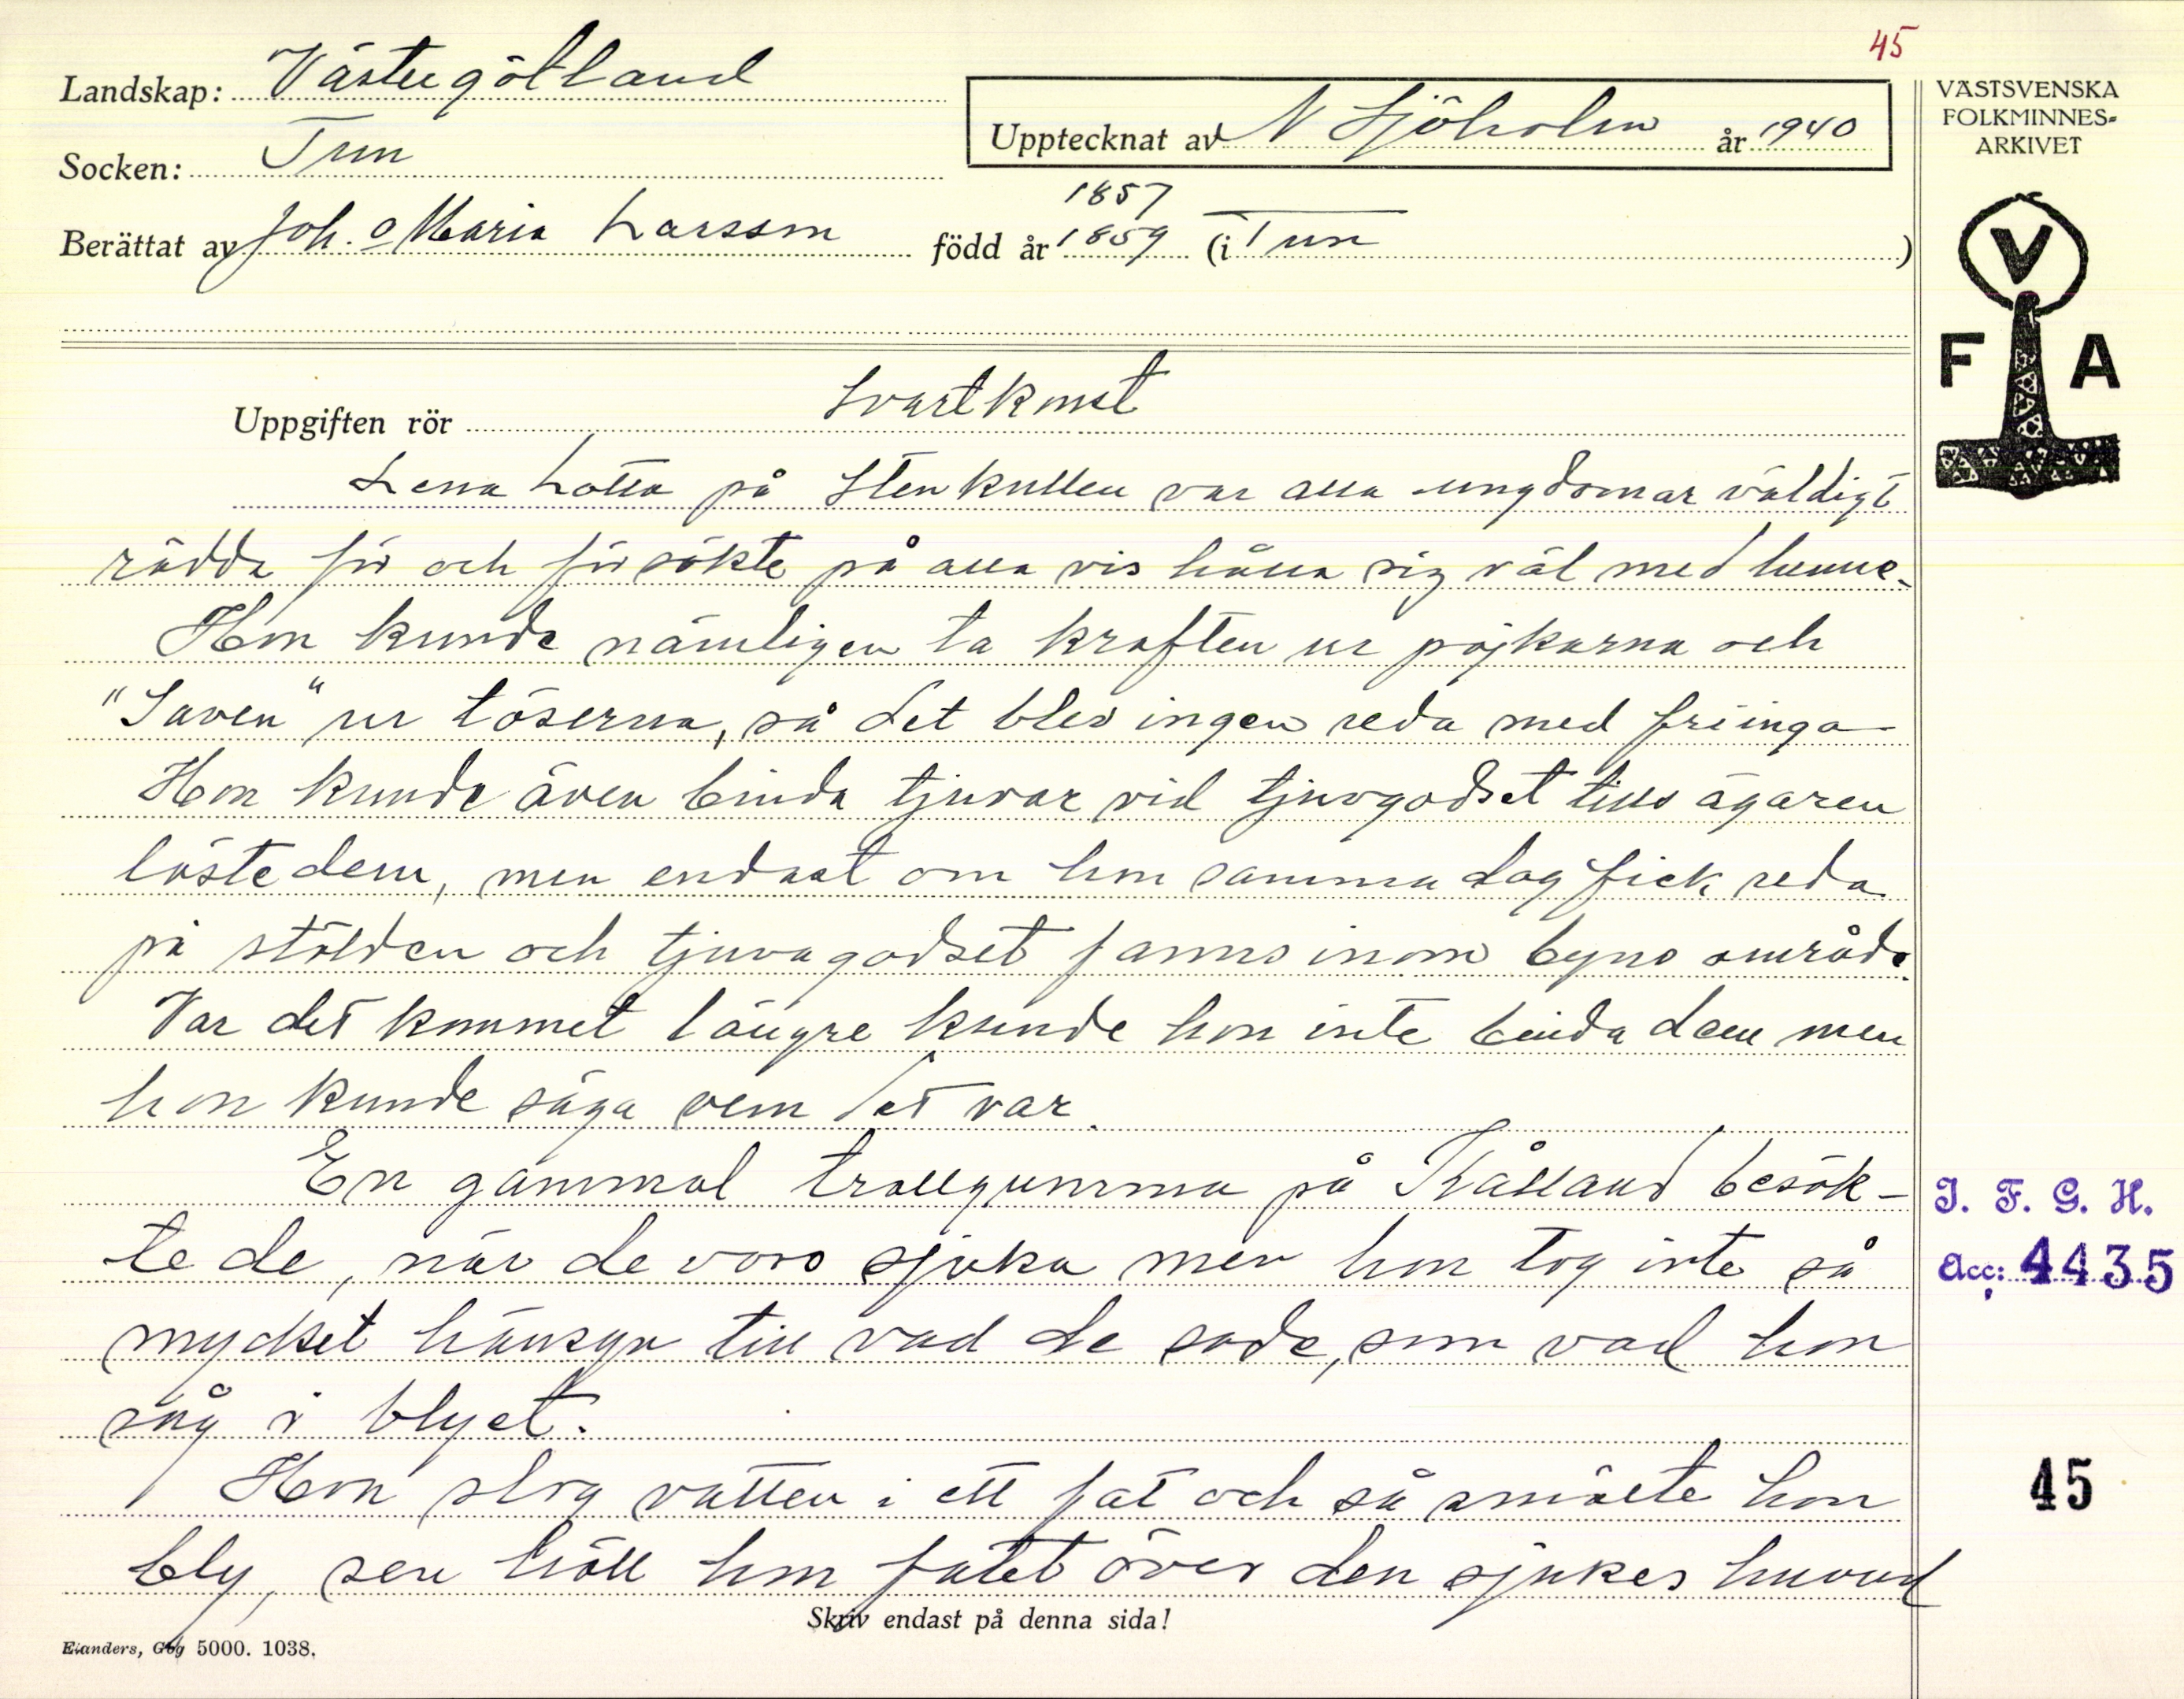 45
Landskap: Västergötland
Socken: Tun
Upptecknat av N Sjöholm år 1940
VÄSTSVENSKA
FOLKMINNES-
ARKIVET
1857
Berättat av Joh. o Maria Larsson född år 1859 (i Tun)
V
F A
Uppgiften rör Svartkonst
Lena Lotta på Stenkullen var alla ungdomar väldigt
rädda för och försökte på alla vis hålla sig väl med henne.
Hon kunde nämligen ta kraften ur pojkarna och
"Saven" ur töserna, så det blev ingen reda med friinga
Hon kunde även binda tjuvar vid tjuvgodset tills ägaren
löste dem, men endast om hon samma dag fick reda
på stölden och tjuvagodset fanns inom byns område.
Var det kommet längre kunde hon inte binda dem men
hon kunde säga vem det var.
En gammal trollgumma på Kålland besök-
te de, när de voro sjuka men hon tog inte så
mycket hänsyn till vad de sade, som vad hon
såg i blyet.
Hon slog vatten i ett fat och så smälte hon
bly, sen höll hon fatet över den sjukes huvud
I. F. G. H.
Acc: 4435
45
Skriv endast på denna sida!
Elanders, Gbg 5000. 1038.